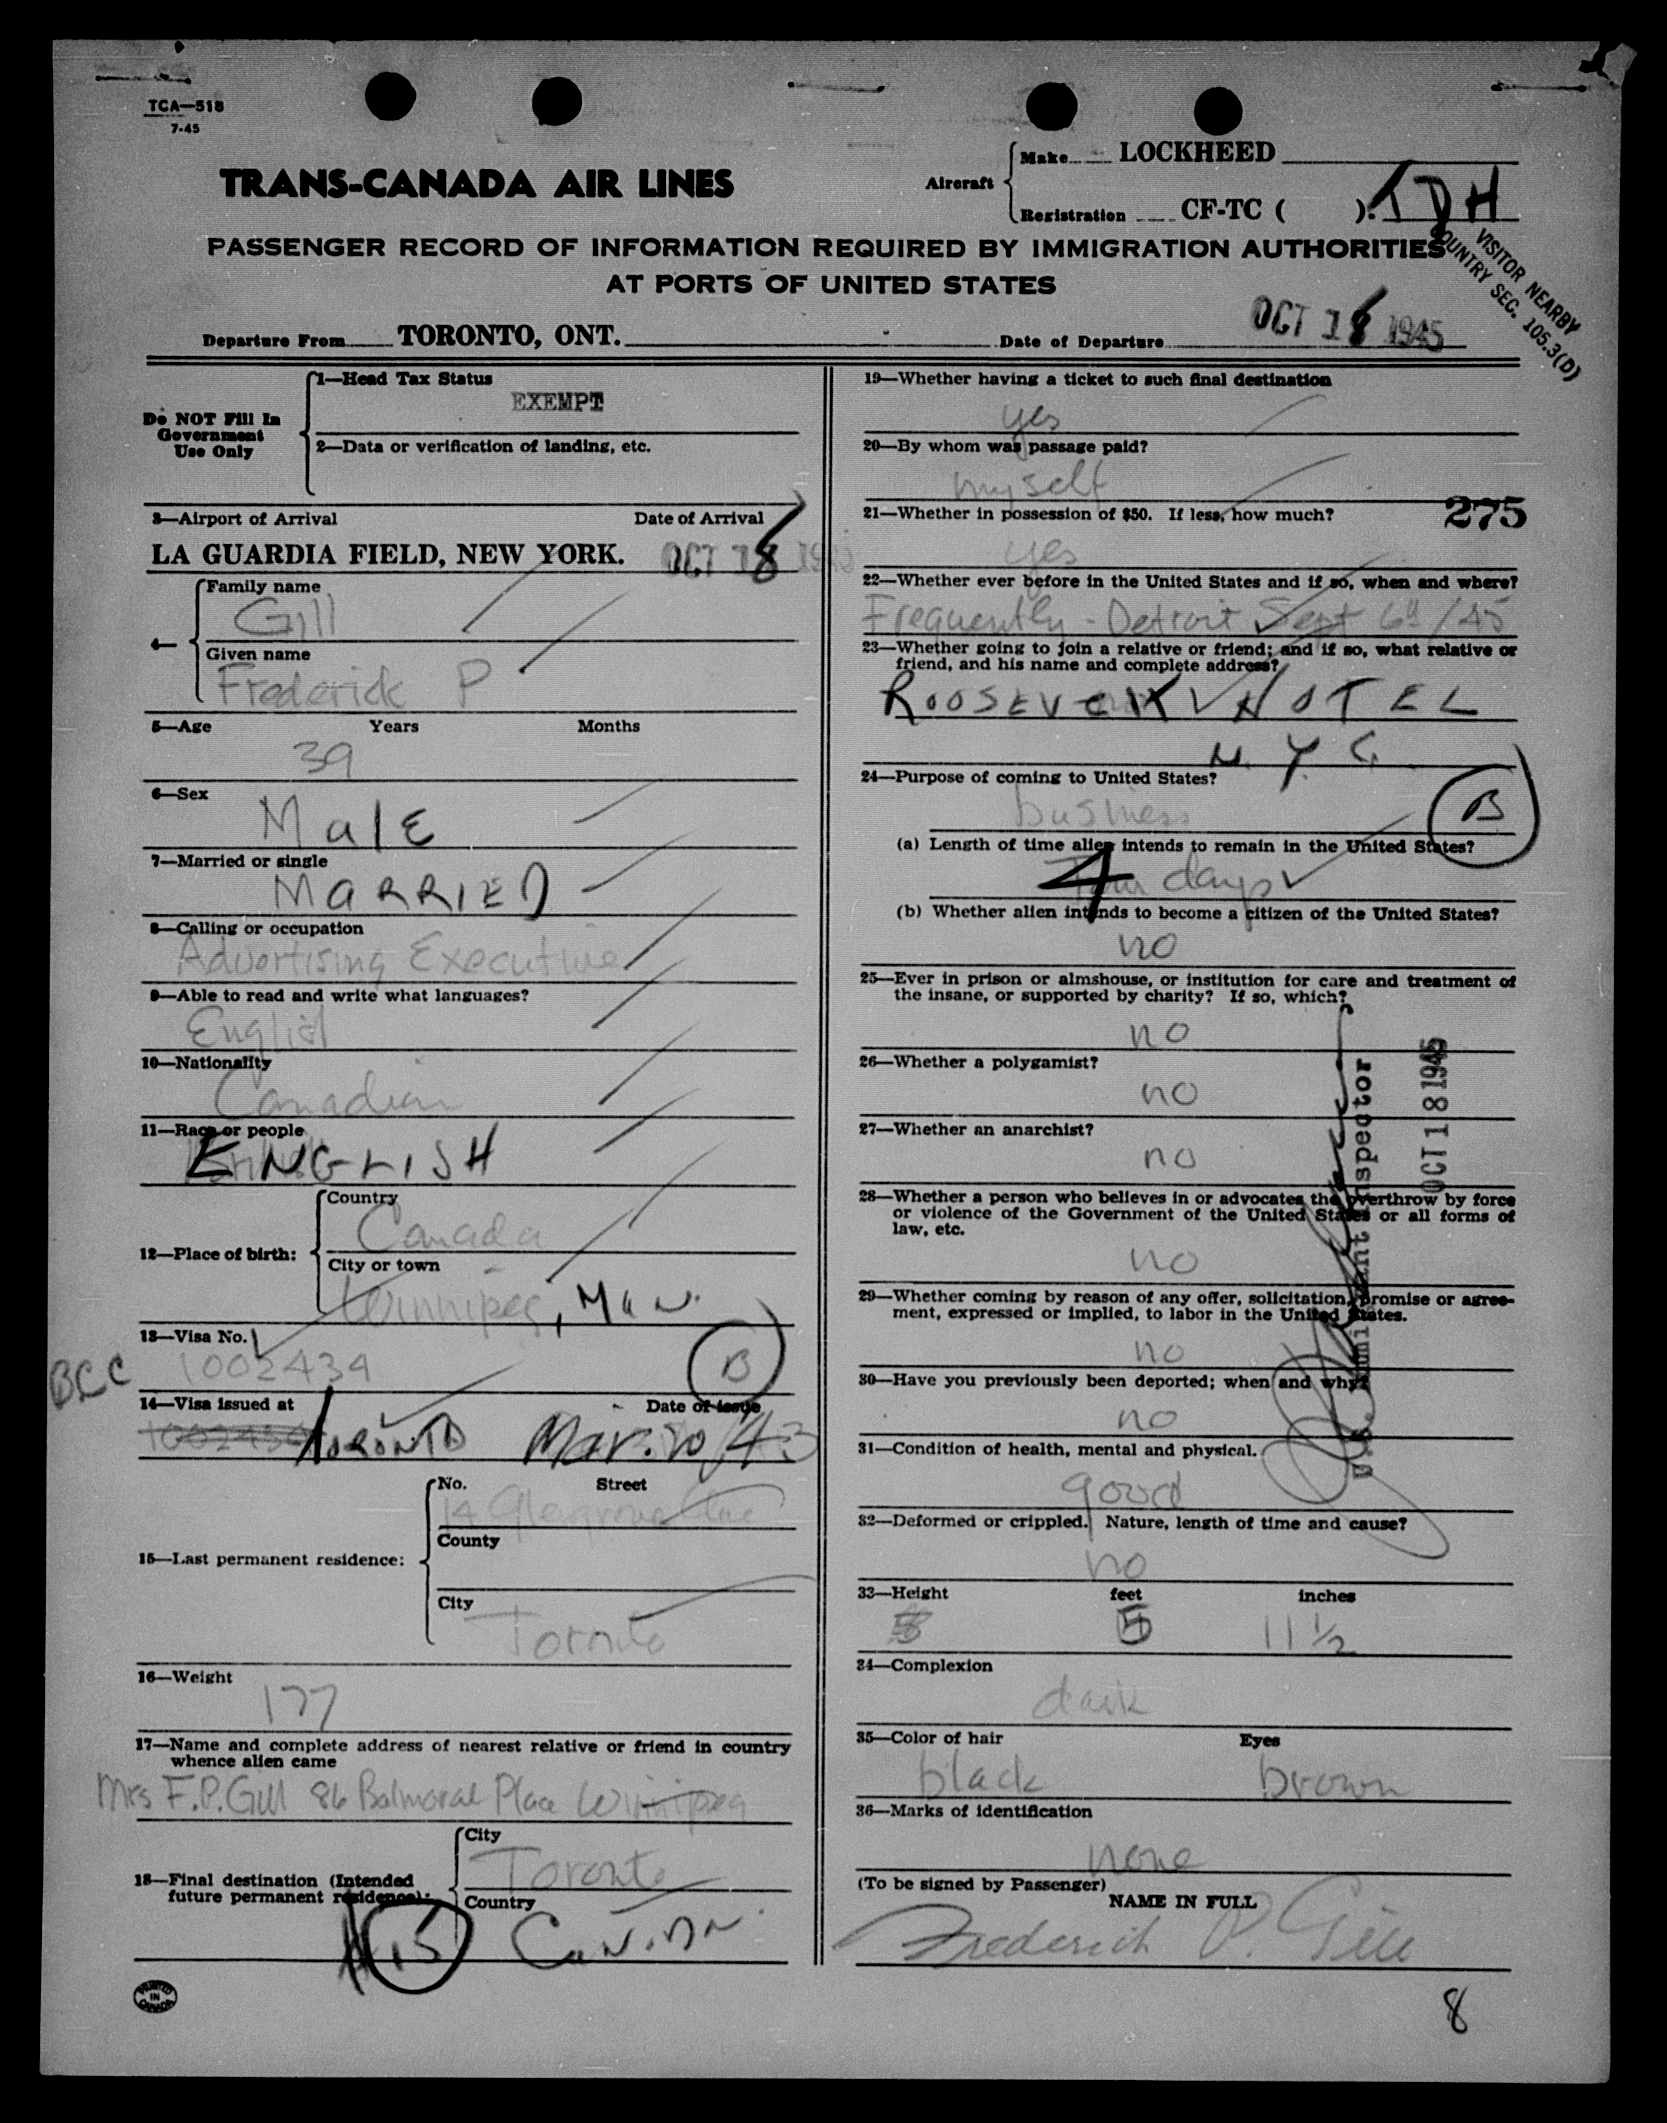 TCA—518
7-45
TRANS-CANADA AIR LINES
Aircraft
Make LOCKHEED
Registration CF-TC ( ). TDH
PASSENGER RECORD OF INFORMATION REQUIRED BY IMMIGRATION AUTHORITIES
AT PORTS OF UNITED STATES
VISITOR NEARBY
COUNTRY SEC. 105.3(D)
Departure From TORONTO, ONT. Date of Departure OCT 18 1945
Do NOT Fill In
Government
Use Only
1—Head Tax Status
EXEMPT
2—Data or verification of landing, etc.
3—Airport of Arrival Date of Arrival
LA GUARDIA FIELD, NEW YORK. OCT 18 1945
4—
Family name
Gill
Given name
Frederick P
5—Age Years Months
39
6—Sex
Male
7—Married or single
MARRIED
8—Calling or occupation
Advertising Executive
9—Able to read and write what languages?
English
10—Nationality
Canadian
11—Race or people
ENGLISH
12—Place of birth:
Country
Canada
City or town
Winnipeg, Man.
13—Visa No.
BCC 1002434 B
14—Visa issued at Date of issue
1002434 TORONTO Mar. 20/43
15—Last permanent residence:
No. Street
14 Glengrove Ave
County
City
Toronto
16—Weight
177
17—Name and complete address of nearest relative or friend in country
whence alien came
Mrs F.P. Gill 86 Balmoral Place Winnipeg
18—Final destination (Intended
future permanent residence):
City
Toronto
Country
Can.
15
PRINTED
IN
CANADA
19—Whether having a ticket to such final destination
yes
20—By whom was passage paid?
myself
21—Whether in possession of $50. If less, how much? 275
yes
22—Whether ever before in the United States and if so, when and where?
Frequently - Detroit Sept 6th/45
23—Whether going to join a relative or friend; and if so, what relative or
friend, and his name and complete address?
ROOSEVELT HOTEL
N. Y. C.
24—Purpose of coming to United States?
business B
(a) Length of time alien intends to remain in the United States?
4 Four days
(b) Whether alien intends to become a citizen of the United States?
no
25—Ever in prison or almshouse, or institution for care and treatment of
the insane, or supported by charity? If so, which?
no
26—Whether a polygamist?
no
27—Whether an anarchist?
no
28—Whether a person who believes in or advocates the overthrow by force
or violence of the Government of the United States or all forms of
law, etc.
no
29—Whether coming by reason of any offer, solicitation, promise or agree-
ment, expressed or implied, to labor in the United States.
no
30—Have you previously been deported; when and why?
no
U.S. Immigrant Inspector
OCT 18 1945
31—Condition of health, mental and physical.
good
32—Deformed or crippled. Nature, length of time and cause?
no
33—Height feet inches
5 11 ½
34—Complexion
dark
35—Color of hair Eyes
black brown
36—Marks of identification
none
(To be signed by Passenger)
NAME IN FULL
Frederick P. Gill
8